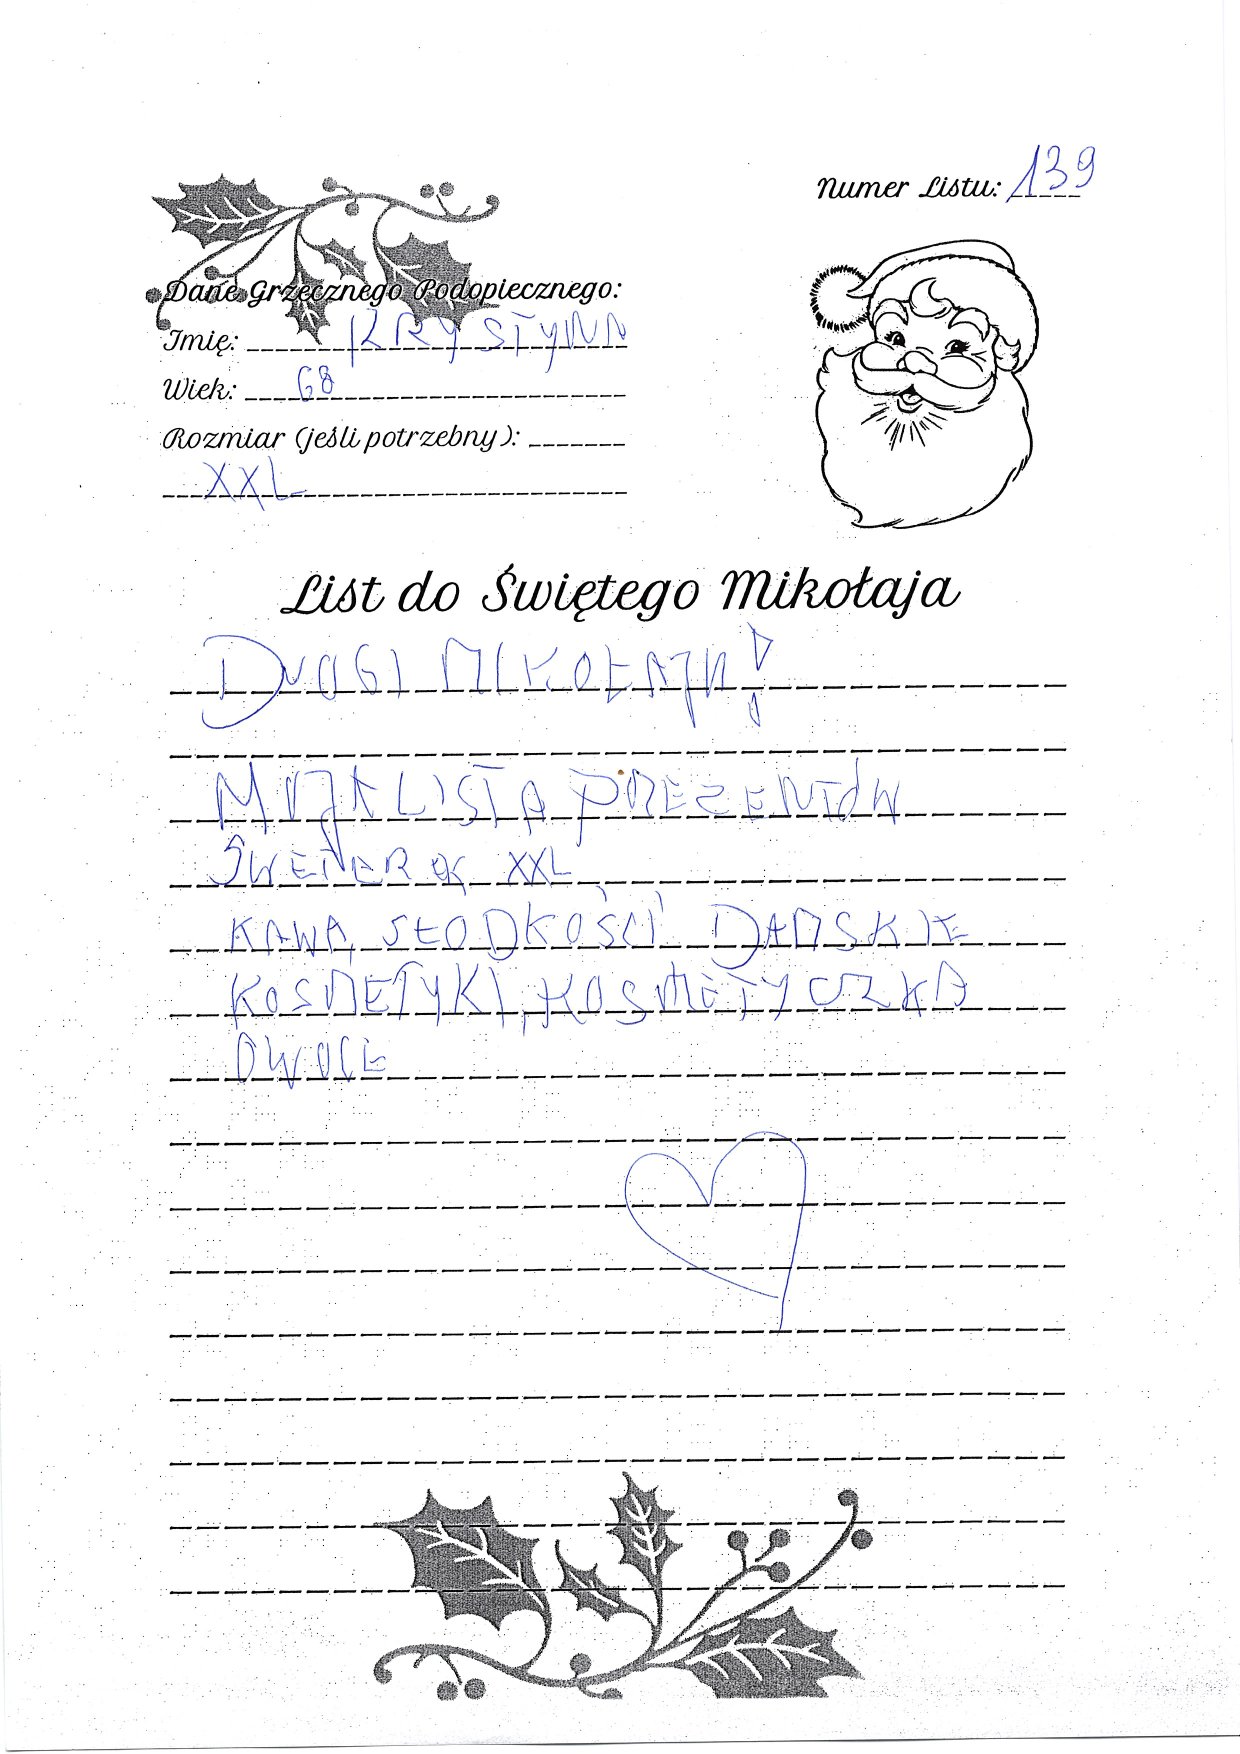 Numer Listu: 139
Dane Grzecznego Podopiecznego:
Imię: KRYSTYNA
Wiek: 68
Rozmiar (jeśli potrzebny):
XXL
List do Świętego Mikołaja
DROGI MIKOŁAJU!
MOJA LISTA PREZENTÓW
SWETEREK XXL
KAWA, SŁODKOŚCI, DAMSKIE
KOSMETYKI, KOSMETYCZKA
OWOCE